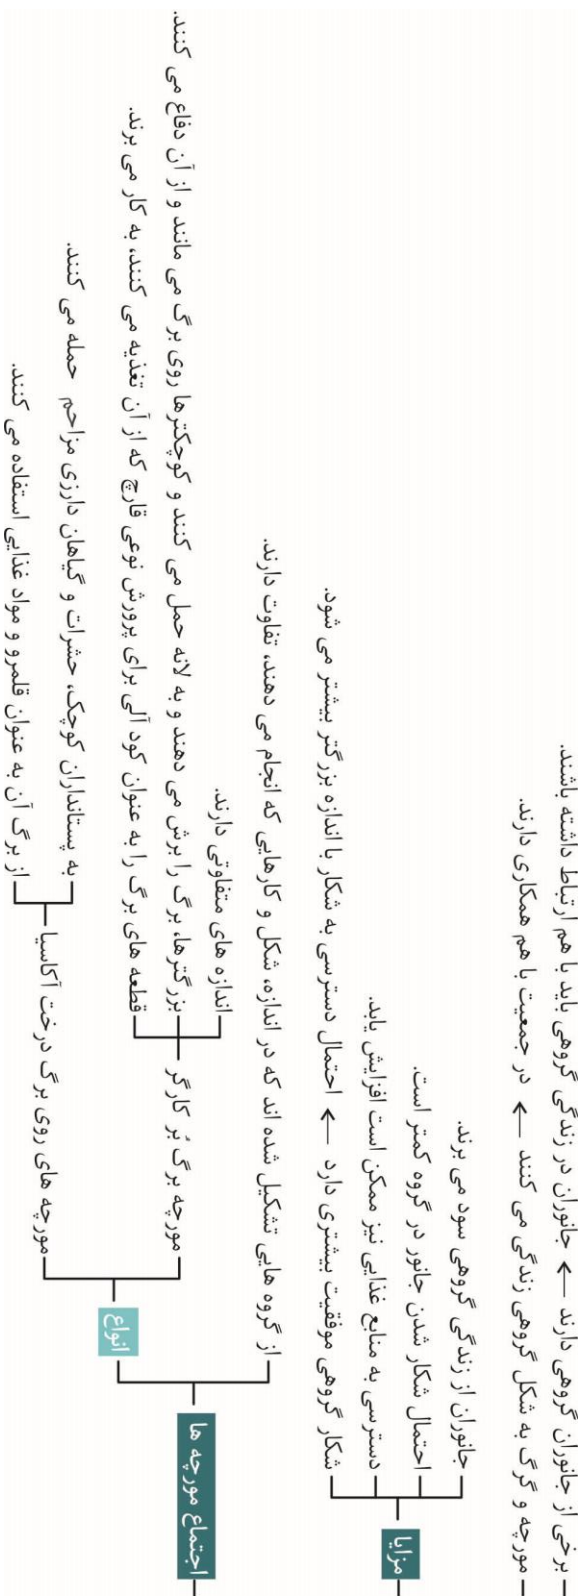 برخی از جانوران گروهی دارند ← جانوران در زندگی گروهی باید با هم ارتباط داشته باشند.
مورچه و گرگ به شکل گروهی زندگی می کنند ← در جمعیت با هم همکاری دارند.
مزایا
جانوران از زندگی گروهی سود می برند.
احتمال شکار شدن جانور در گروه کمتر است.
دسترسی به منابع غذایی نیز ممکن است افزایش یابد.
شکار گروهی موفقیت بیشتری دارد ← احتمال دسترسی به شکار با اندازه بزرگتر بیشتر می شود.
اجتماع مورچه ها
از گروه هایی تشکیل شده اند که در اندازه، شکل و کارهایی که انجام می دهند، تفاوت دارند.
انواع
مورچه برگ بُر کارگر
اندازه های متفاوتی دارند.
بزرگترها، برگ را برش می دهند و به لانه حمل می کنند و کوچکترها روی برگ می مانند و از آن دفاع می کنند.
قطعه های برگ را به عنوان کود آلی برای پرورش نوعی قارچ که از آن تغذیه می کنند، به کار می برند.
مورچه های روی برگ درخت آکاسیا
به پستانداران کوچک، حشرات و گیاهان دارزی مزاحم حمله می کنند.
از برگ آن به عنوان قلمرو و مواد غذایی استفاده می کنند.